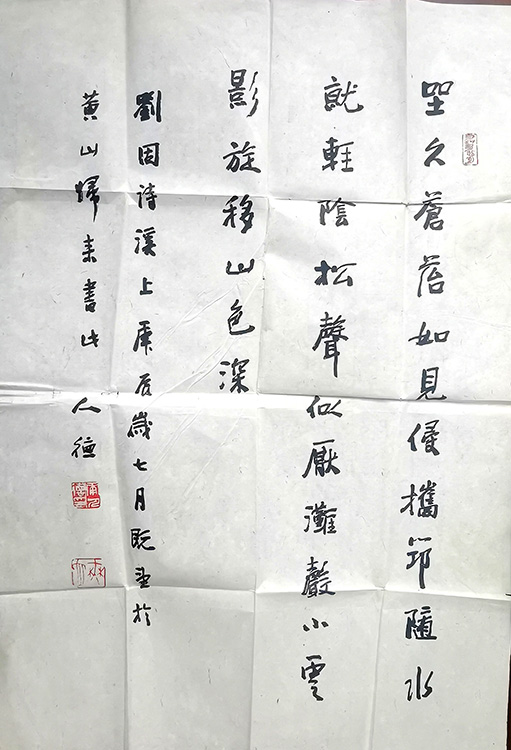 坐久蒼苔如見侵攜筇隨水
就輕陰松聲似厭灘聲小雲
影旋移山色深
劉因詩溪上庚辰歲七月既望於
黄山歸来書此
人德